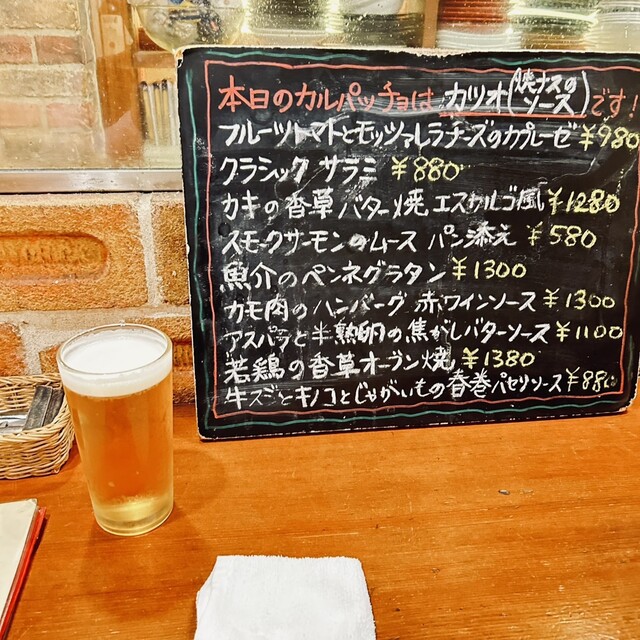 本日のカルパッチョは カツオ(焼ナスのソース)です!
フルーツトマトとモッツァレラチーズのカプレーゼ ¥980
クラシック サラミ ¥880
カキの香草バター焼 エスカルゴ風 ¥1280
スモークサーモンのムース パン添え ¥580
魚介のペンネグラタン ¥1300
カモ肉のハンバーグ 赤ワインソース ¥1300
アスパラと半熟卵の焦がしバターソース ¥1100
若鶏の香草オーブン焼 ¥1380
牛スジとキノコとじゃがいもの春巻 パセリソース ¥880